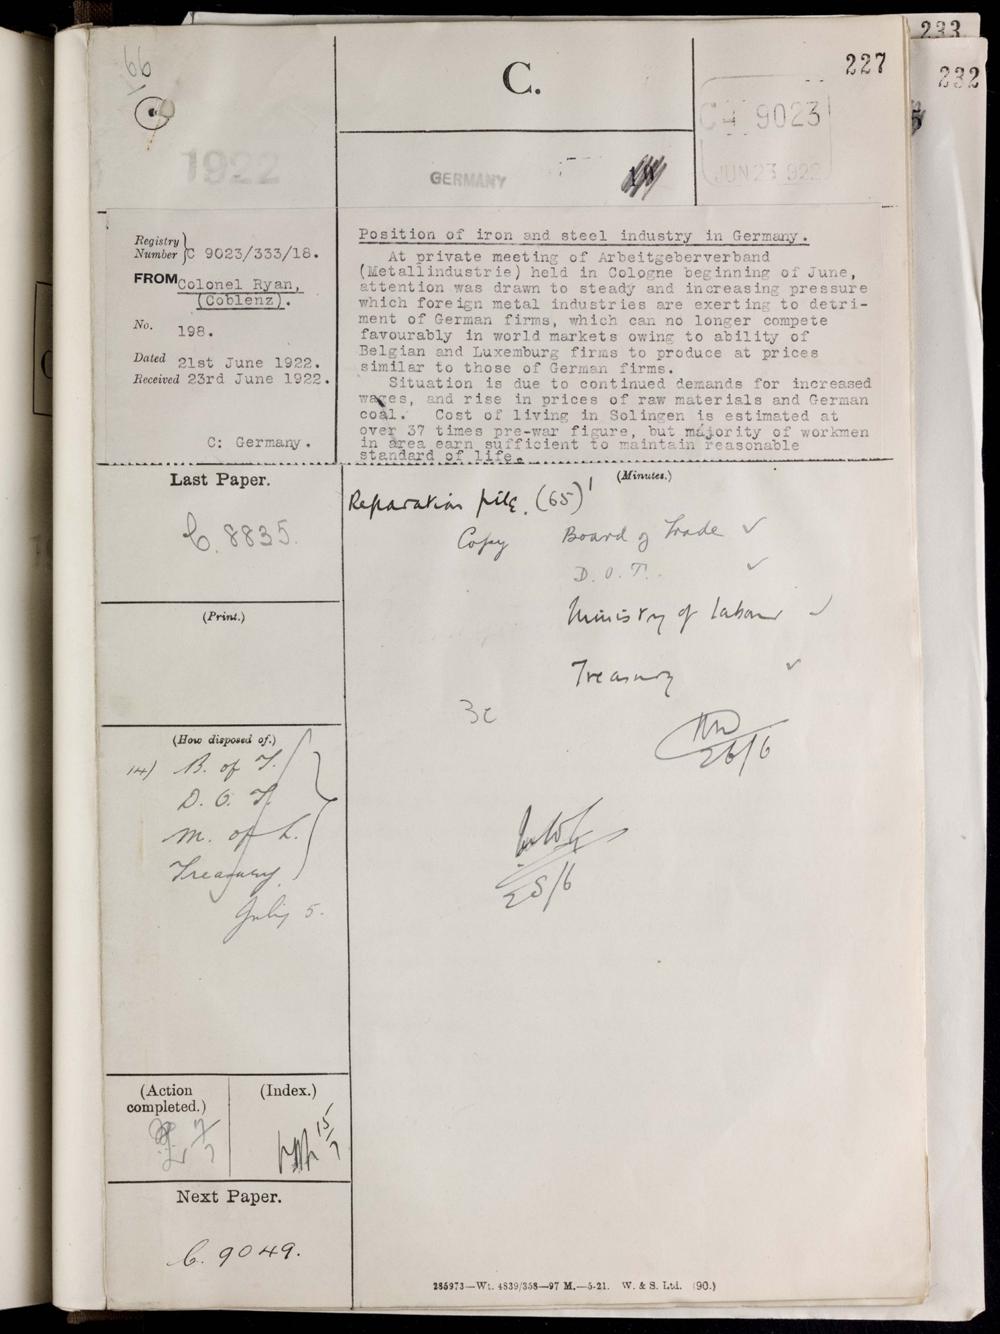 233
232
227
66
C.
C 9023
JUN 23 1922
1922
GERMANY
Registry
Number C 9023/333/18.
FROM Colonel Ryan,
(Coblenz).
No. 198.
Dated 21st June 1922.
Received 23rd June 1922.
C: Germany.
Position of iron and steel industry in Germany.
At private meeting of Arbeitgeberverband
(Metallindustrie) held in Cologne beginning of June,
attention was drawn to steady and increasing pressure
which foreign metal industries are exerting to detri-
ment of German firms, which can no longer compete
favourably in world markets owing to ability of
Belgian and Luxemburg firms to produce at prices
similar to those of German firms.
Situation is due to continued demands for increased
wages, and rise in prices of raw materials and German
coal. Cost of living in Solingen is estimated at
over 37 times pre-war figure, but majority of workmen
in area earn sufficient to maintain reasonable
standard of life.
Last Paper.
C. 8835.
(Print.)
(How disposed of.)
14) B. of T.
D. O. T.
M. of L.
Treasury.
July 5.
(Action
completed.)
(Index.)
15/7
Next Paper.
C. 9049.
(Minutes.)
Reparation file. (65)
Copy Board of Trade ✓
D. O. T. ✓
Ministry of Labour ✓
Treasury ✓
3c
26/6
25/6
285973—Wt. 4839/358—97 M.—5-21. W. & S. Ltd. (90.)